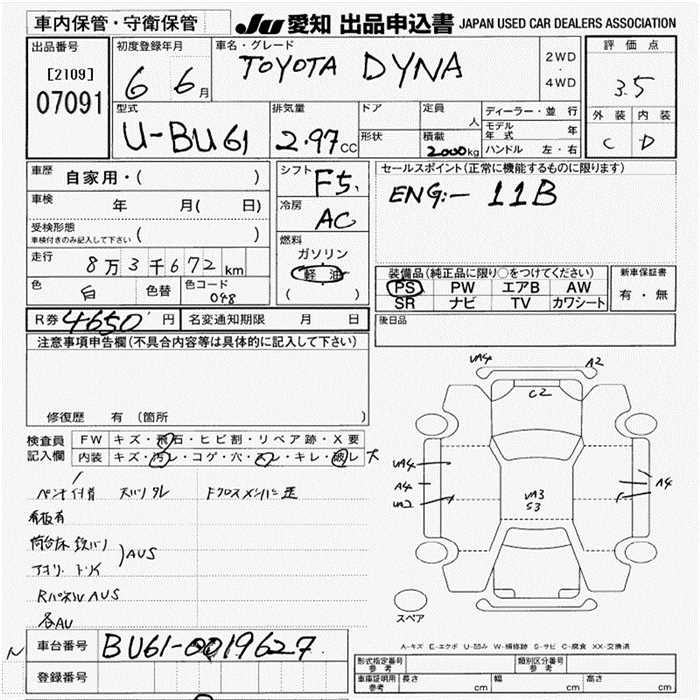 車内保管・守衛保管
JU 愛知 出品申込書 JAPAN USED CAR DEALERS ASSOCIATION
出品番号
[2109]
07091
初度登録年月
6 6月
車名・グレード
TOYOTA DYNA
2WD
・
4WD
評価点
3.5
外装 内装
C D
型式
U-BU61
排気量
2.97CC
ドア
形状
定員
人
積載
2000kg
ディーラー・並行
モデル年式 年
ハンドル 左・右
車歴
自家用・( )
車検
年 月( 日)
受検形態
車検付きのみ記入して下さい ( )
走行
8万3千672km
色
白
色替
色コード
048
シフト
F5
冷房
AC
燃料
ガソリン
軽油
( )
セールスポイント(正常に機能するものに限ります)
ENG:- 11B
装備品(純正品に限り○をつけてください)
PS PW エアB AW
SR ナビ TV カワシート
新車保証書
有・無
後日品
R券 4650 円
名変通知期限 月 日
注意事項申告欄(不具合内容等は具体的に記入して下さい)
修復歴 有 (箇所
検査員
記入欄
FW キズ・飛石・ヒビ割・リペア跡・X要
内装 キズ・汚レ・コゲ・穴・スレ・キレ・破レ 大
看板有
AUS
RパネルAUS
各AU
車台番号
BU61-0019627
登録番号
UA4
A2
C2
UA4
A4
UA2
UA3
S3
A4
スペア
A-キズ E-エクボ U-凹み W-補修跡 S-サビ C-腐食 XX-交換済
形式指定番号
参考
類別区分番号
参考
車庫証明用
参考
長さ cm
幅 cm
高さ cm